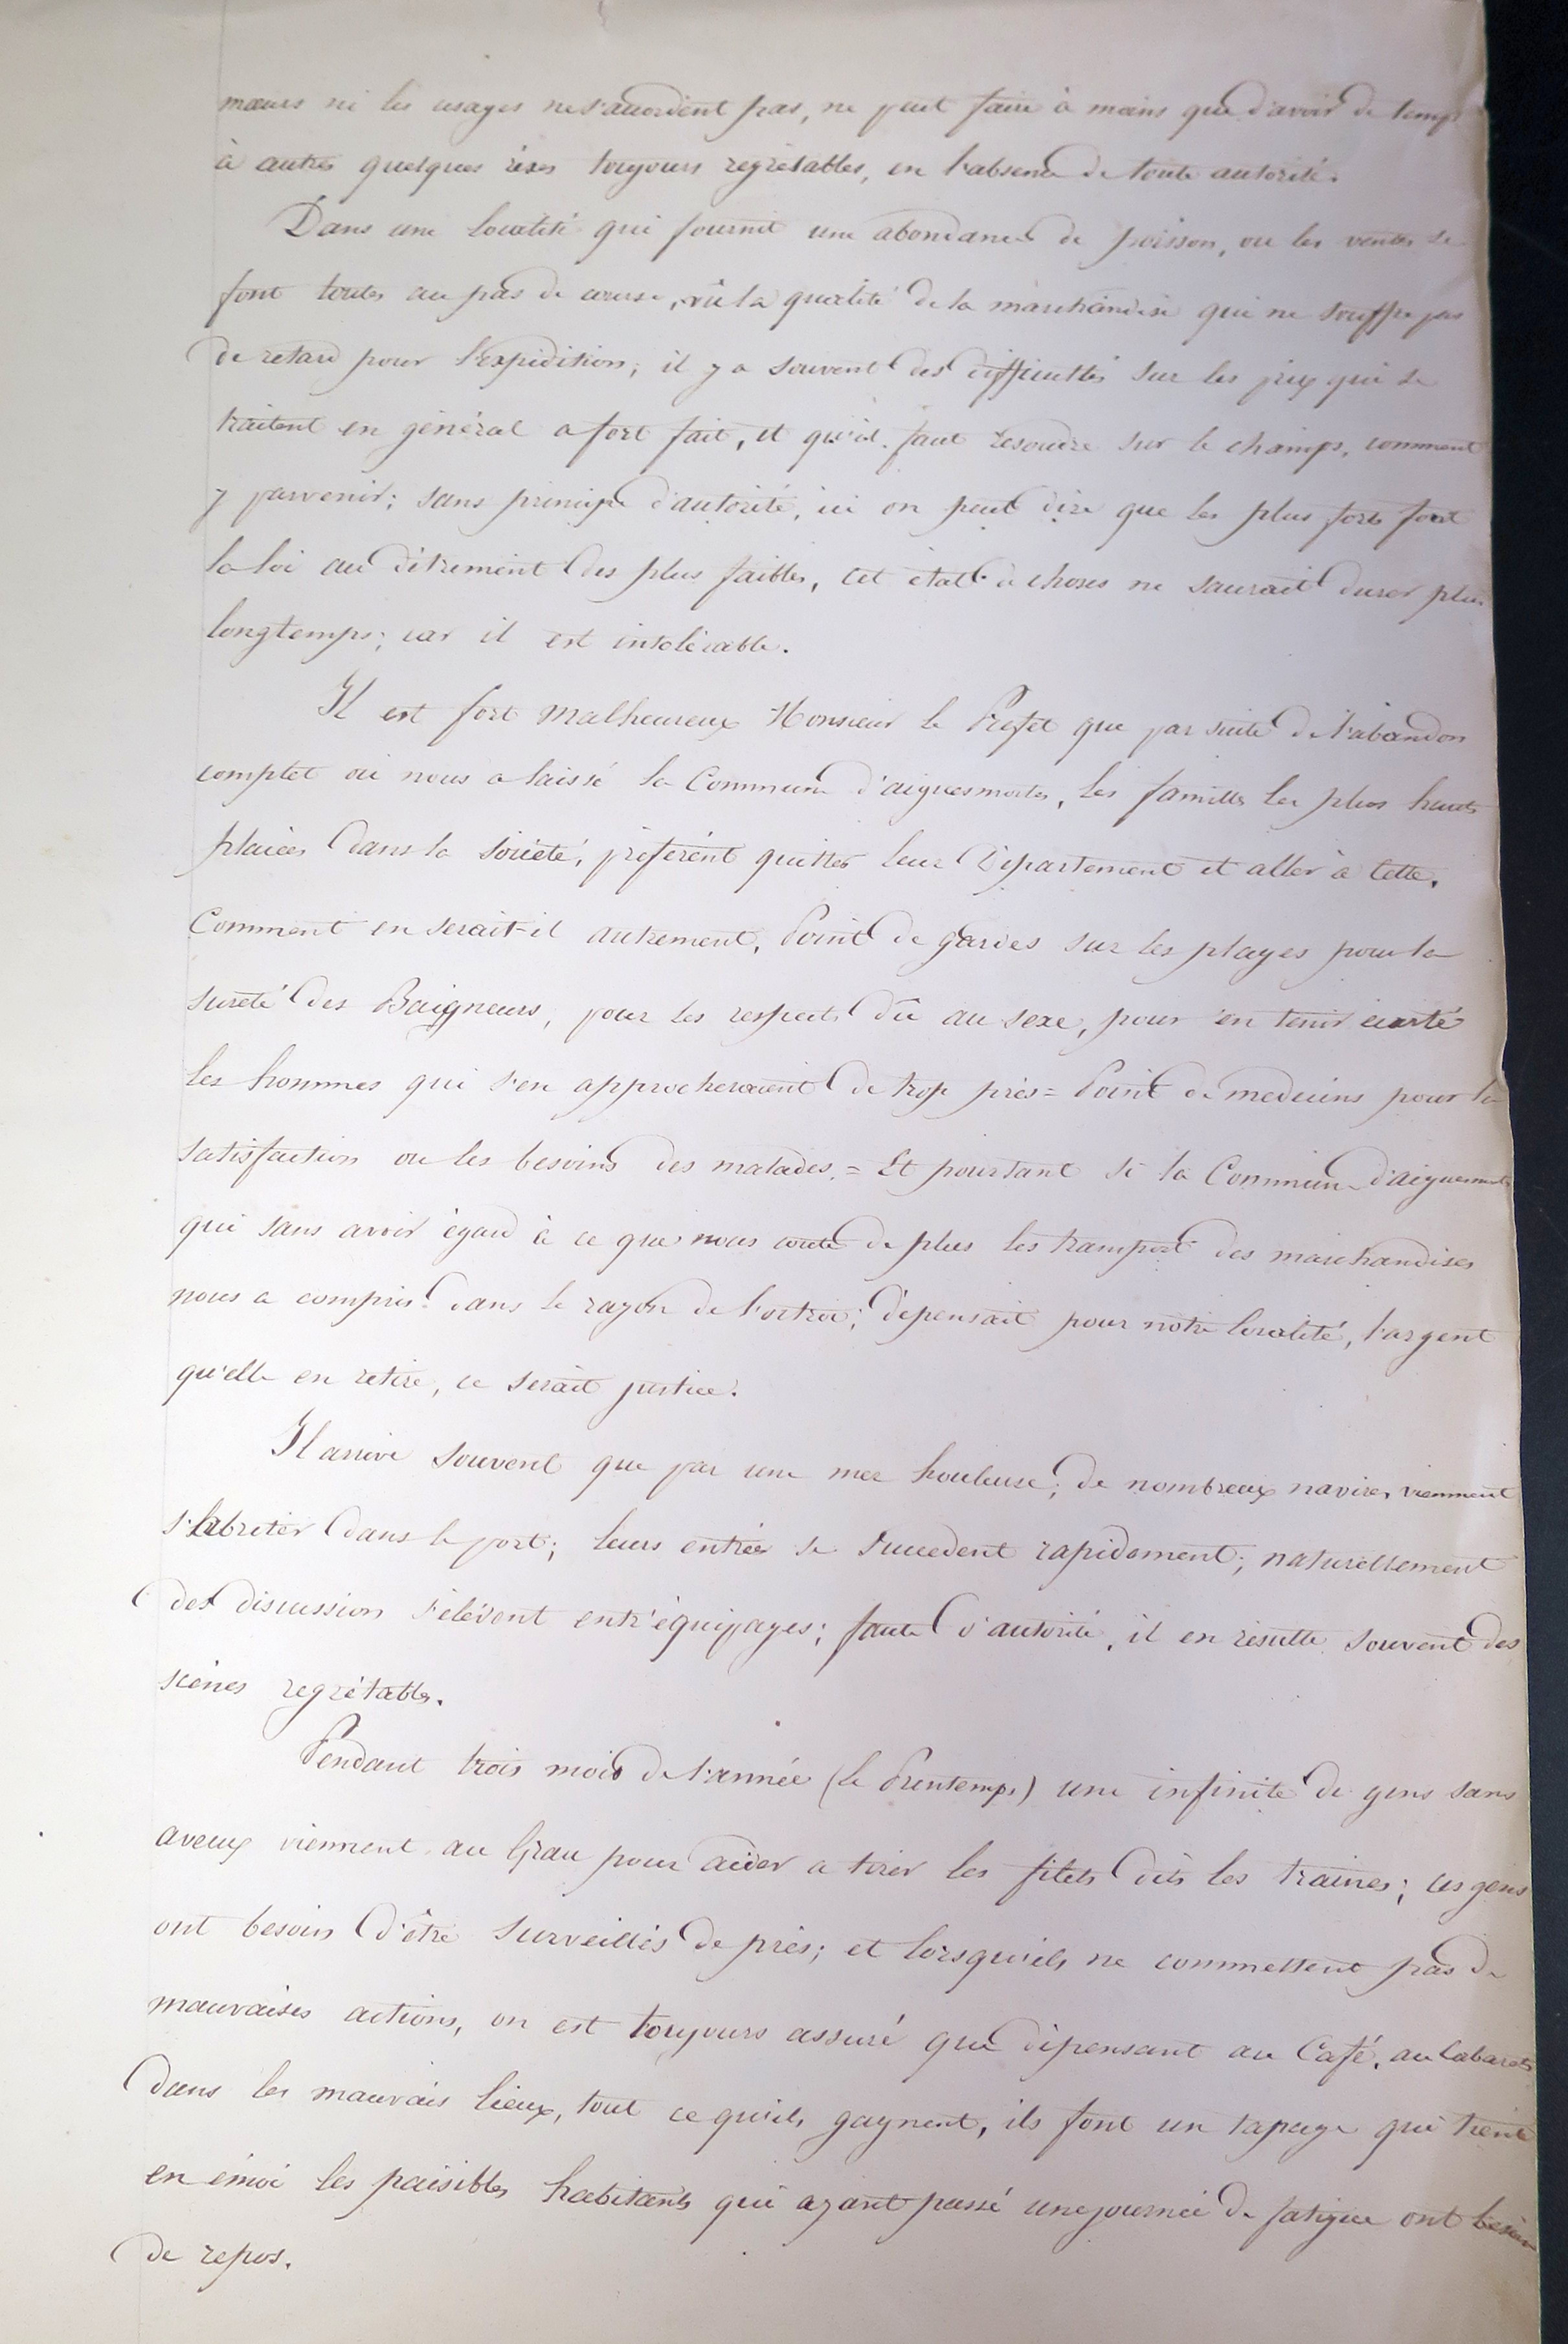 mœurs ni les usages ne s'accordent pas, ne peut faire à moins que d'avoir de temps
à autres quelques rixes toujours regrétables, en l'absence de toute autorité.
Dans une localité qui fournit une abondance de poisson, ou les ventes se
font toutes au pas de course, vû la qualité de la marchandise qui ne souffre pas
de retard pour l'expédition; il y a souvent des difficultés sur les prix qui se
traitent en général a fort fait, et qu'il faut resoudre sur le champs, comment
y parvenir; sans principe d'autorité, ici on peut dire que les plus forts font
la loi au détriment des plus faibles, cet état de choses ne saurait durer plus
longtemps; car il est intolérable.
Il est fort malheureux Monsieur le Préfet que par suite de l'abandon
complet où nous a laissé la Commune d'aiguesmortes, les familles les plus hauts
placées dans la société, préferént quitter leur Département et aller à Cette.
Comment en serait-il autrement, Point de gardes sur les plages pour la
sureté des Baigneurs, pour les respects dû au sexe, pour en tenir écarté
les hommes qui s'en approcheraient de trop près = Point de medecins pour la
satisfaction ou les besoins des malades. = Et pourtant si la Commune d'aiguesmortes
qui sans avoir égard à ce que nous coute de plus les transport des marchandises
nous a compris dans le rayon de l'octroi; dépensait pour notre localité, l'argent
qu'elle en retire, ce serait justice.
Il arrive souvent que par une mer houleuse; de nombreux navires viennent
s'abriter dans le port; leurs entrées se succedent rapidement; naturellement
des discussion s'élévent entr'équipages; faute d'autorité, il en résulte souvent des
scènes regrétables.
Pendant trois mois de l'année (le Printemps) une infinité de gens sans
aveux viennent au Grau pour aider a tirer les filets dits les traines; ces gens
ont besoin d'être surveillés de près; et lorsqu'ils ne commettent pas de
mauvaises actions, on est toujours assuré que dépensant au Café, au Cabarets
dans les mauvais lieux, tout ce qu'ils gagnent, ils font un tapage qui tient
en émoi les paisibles habitants qui ayant passé une journée de fatigue ont besoin
de repos.